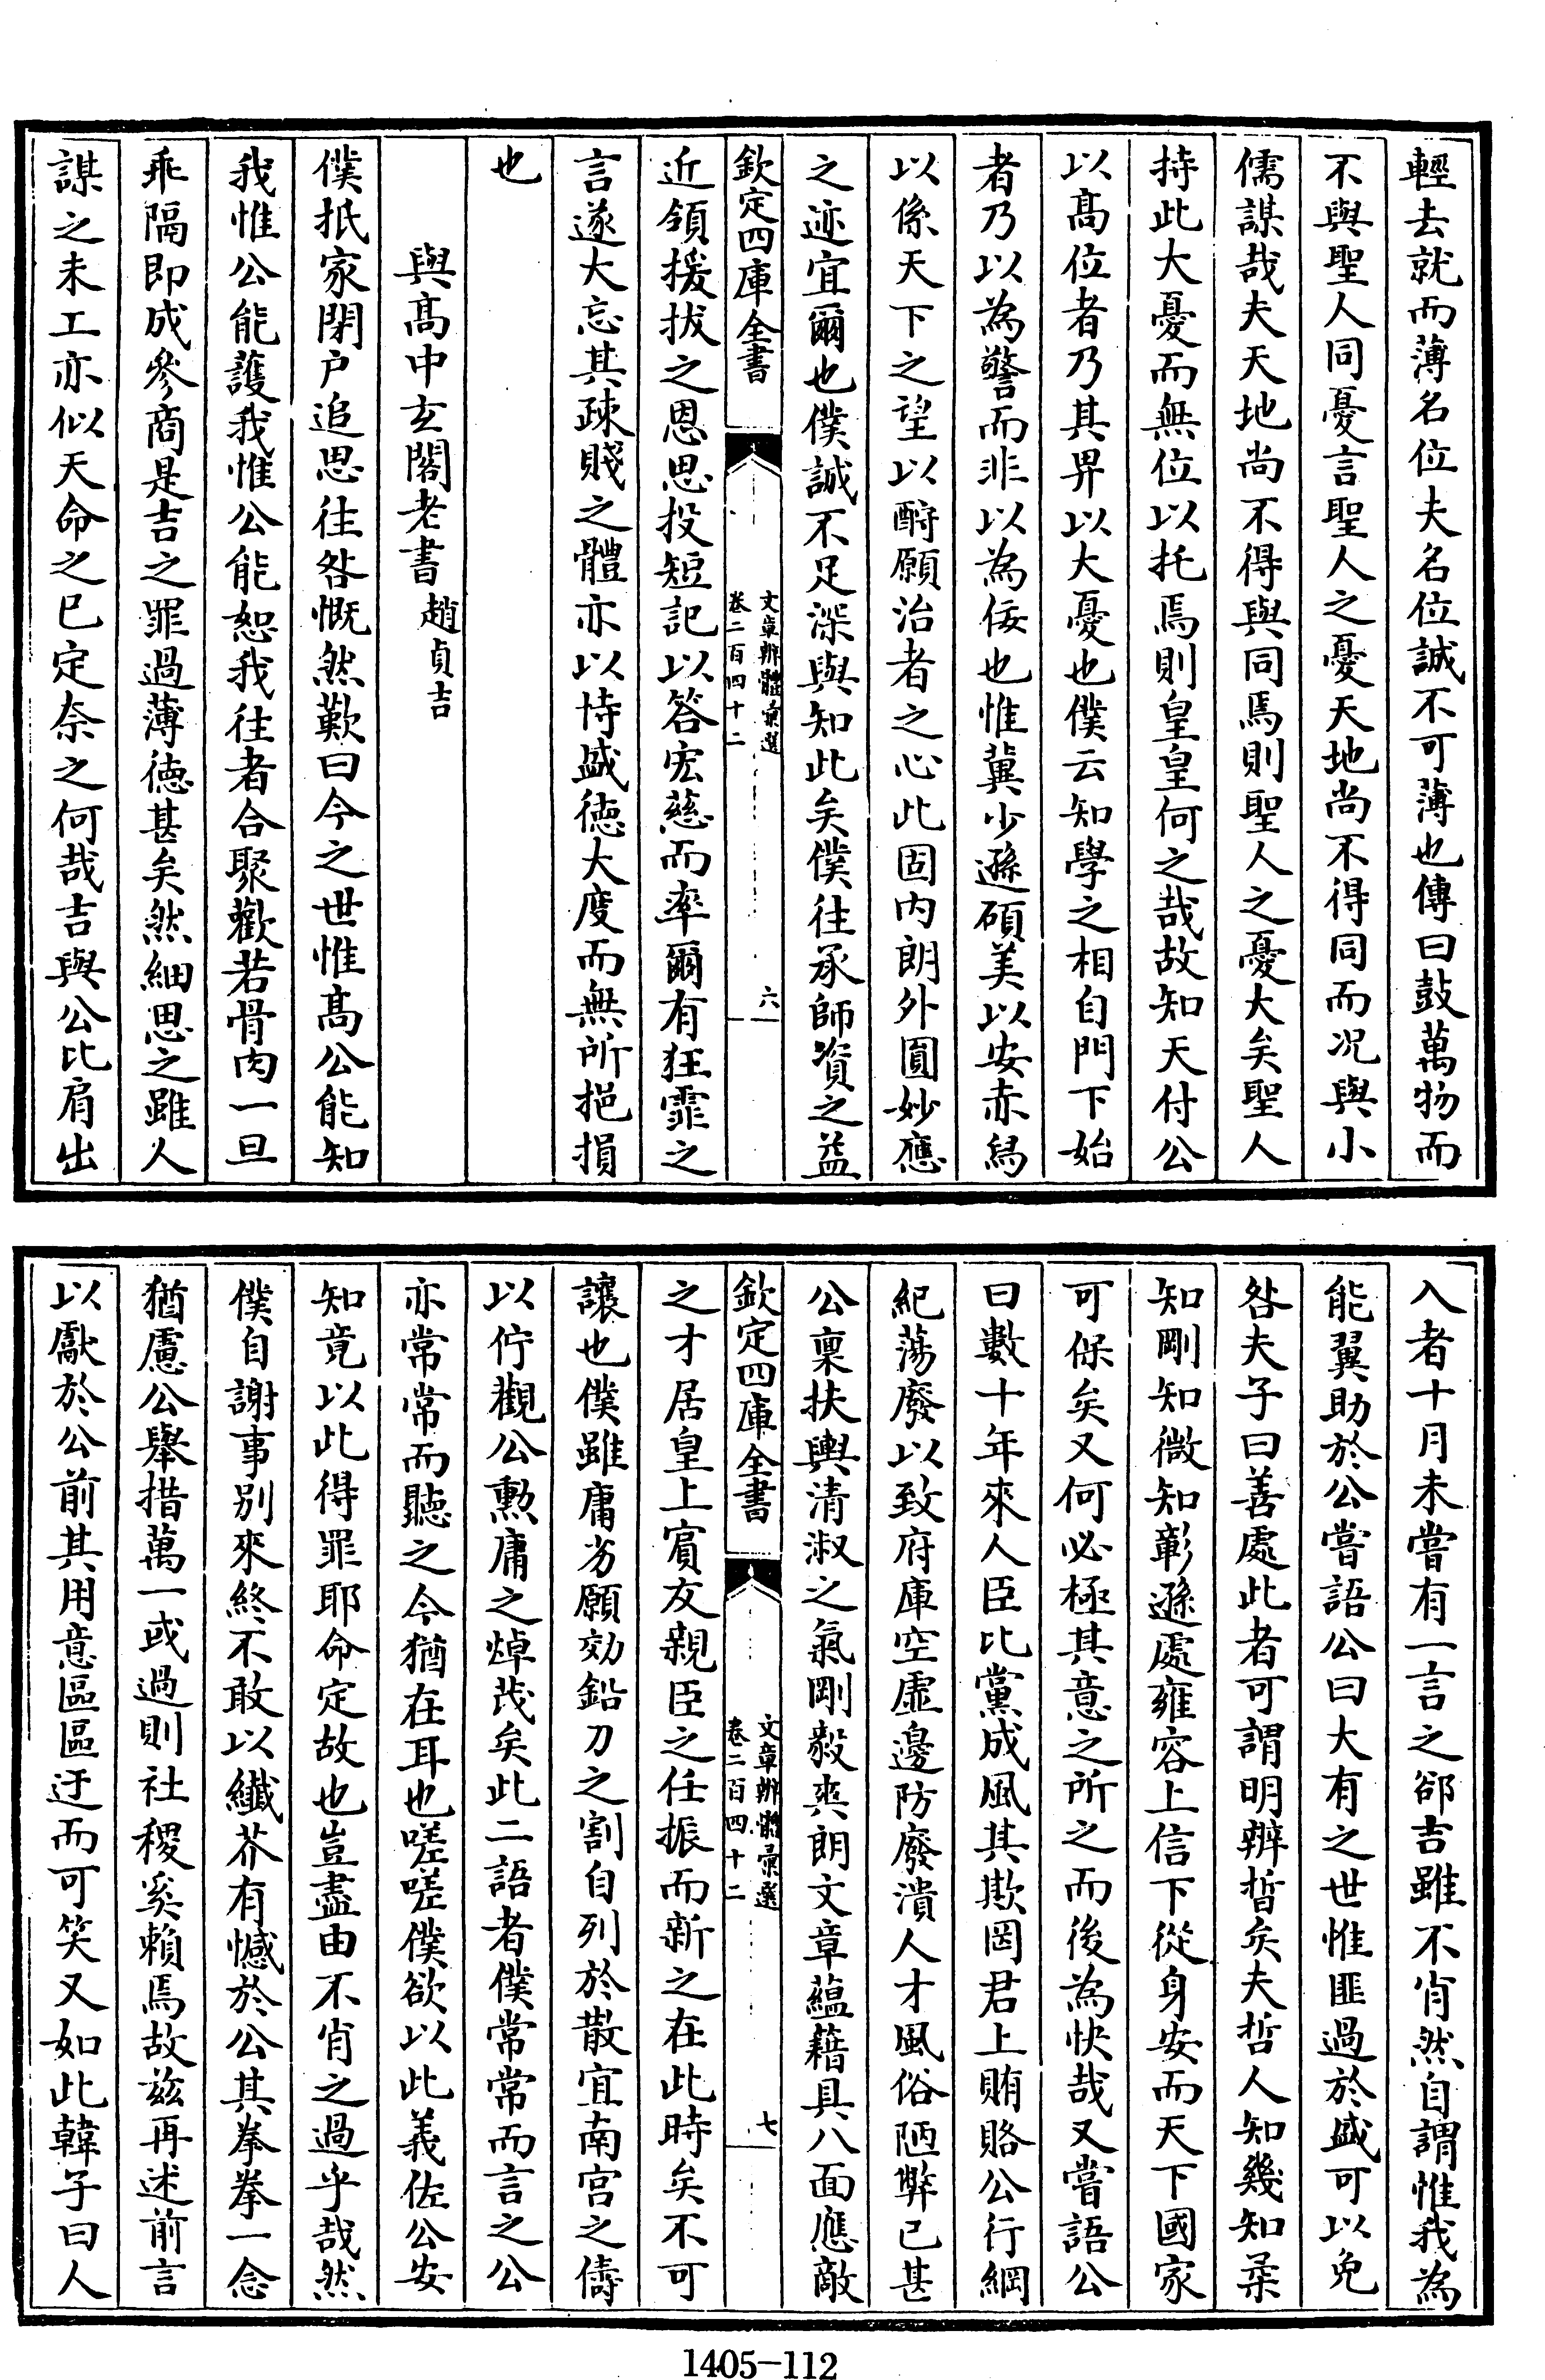 輕去就而薄名位夫名位誠不可薄也傳曰鼓萬物而
不與聖人同憂言聖人之憂天地尚不得同而况與小
儒謀哉夫天地尚不得與同焉則聖人之憂大矣聖人
持此大憂而無位以托焉則皇皇何之哉故知天付公
以髙位者乃其畀以大憂也僕云知學之相自門下始
者乃以為警而非以為佞也惟冀少遜碩美以安赤舄
以係天下之望以酧願治者之心此固内朗外圓妙應
之迹宜爾也僕誠不足深與知此矣僕往承師資之益
欽定四庫全書
文章辨體彙選
卷二百四十二
六
近領援拔之恩思投短記以答宏慈而率爾有狂霏之
言遂大忘其疎賤之體亦以恃盛徳大度而無所挹損
也
與髙中玄閣老書趙貞吉
僕抵家閉户追思往咎慨然歎曰今之世惟髙公能知
我惟公能護我惟公能恕我往者合聚歡若骨肉一旦
乖隔即成參商是吉之罪過薄徳甚矣然細思之雖人
謀之未工亦似天命之已定奈之何哉吉與公比肩出
入者十月未嘗有一言之郤吉雖不肖然自謂惟我為
能翼助於公嘗語公曰大有之世惟匪過於盛可以免
咎夫子曰善處此者可謂明辨晢矣夫哲人知幾知柔
知剛知微知彰遜處雍容上信下從身安而天下國家
可保矣又何必極其意之所之而後為快哉又嘗語公
曰數十年來人臣比黨成風其欺罔君上賄賂公行綱
紀蕩廢以致府庫空虛邊防廢潰人才風俗陋弊已甚
公稟扶輿清淑之氣剛毅爽朗文章蘊藉具八面應敵
欽定四庫全書
文章辨體彙選
卷二百四十二
七
之才居皇上賓友親臣之任振而新之在此時矣不可
讓也僕雖庸劣願効鉛刀之割自列於散宜南宫之儔
以佇觀公勲庸之焯茂矣此二語者僕常常而言之公
亦常常而聽之今猶在耳也嗟嗟僕欲以此義佐公安
知竟以此得罪耶命定故也豈盡由不肖之過乎哉然
僕自謝事别來終不敢以纎芥有憾於公其拳拳一念
猶慮公舉措萬一或過則社稷奚賴焉故兹再述前言
以獻於公前其用意區區迂而可笑又如此韓子曰人
1405-112